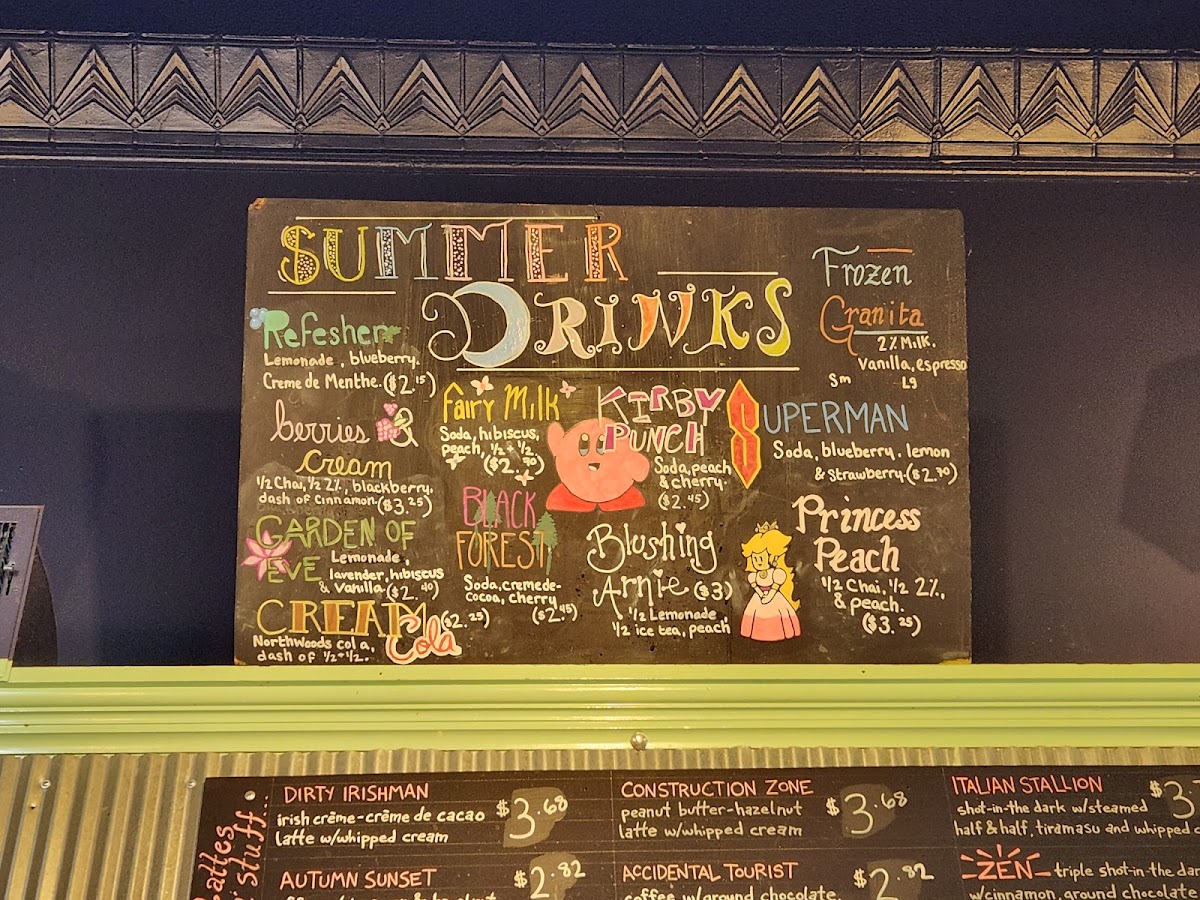 SUMMER
DRINKS
Refesher
Lemonade, blueberry.
Creme de Menthe. ($2.15)
berries &
cream
1/2 Chai, 1/2 2%, blackberry,
dash of cinnamon. ($3.25)
GARDEN OF
EVE
Lemonade,
lavender, hibiscus
& vanilla. ($2.40)
CREAM Cola ($2.25)
Northwoods cola,
dash of 1/2+1/2.
Fairy Milk
Soda, hibiscus,
peach, 1/2+1/2.
BLACK
FOREST
Soda, creme de-
cocoa, cherry
($2.45)
KIRBY
PUNCH
Soda, peach
& cherry.
($2.45)
Blushing
Arnie ($3)
1/2 Lemonade
1/2 ice tea, peach
Frozen
Granita
2% Milk.
Vanilla, espresso
Sm Lg
SUPERMAN
Soda, blueberry, lemon
& strawberry.
Princess
Peach
1/2 Chai, 1/2 2%,
& peach.
($3.25)
DIRTY IRISHMAN
irish crême-crême de cacao
latte w/whipped cream
$3.68
AUTUMN SUNSET
$2.82
CONSTRUCTION ZONE
peanut butter-hazelnut
latte w/whipped cream
$3.68
ACCIDENTAL TOURIST
coffee w/ground chocolate,
$2.82
ITALIAN STALLION
shot-in-the dark w/steamed
half & half, tiramasu and whipped
ZEN- triple shot-in-the
w/cinnamon, ground chocolate